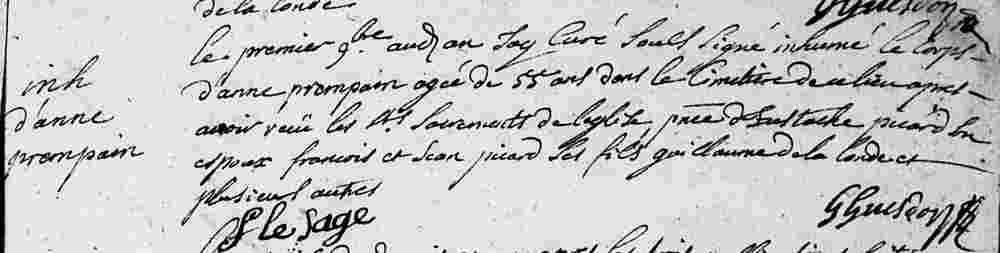 de la londe
GGuesdon
le premier 9bre aud an Jay Curé Soubs signé inhumé le Corps
inh
d'anne
prempain
d'anne prempain agée de 55 ans dans le Cimetière de ce lieu apres
avoir reçû les Sts Sacrements de leglise, pnce d'Eustache picard son
espoux francois et Jean picard ses fils guillaume de la londe et
plusieurs autres
lesage
GGuesdon